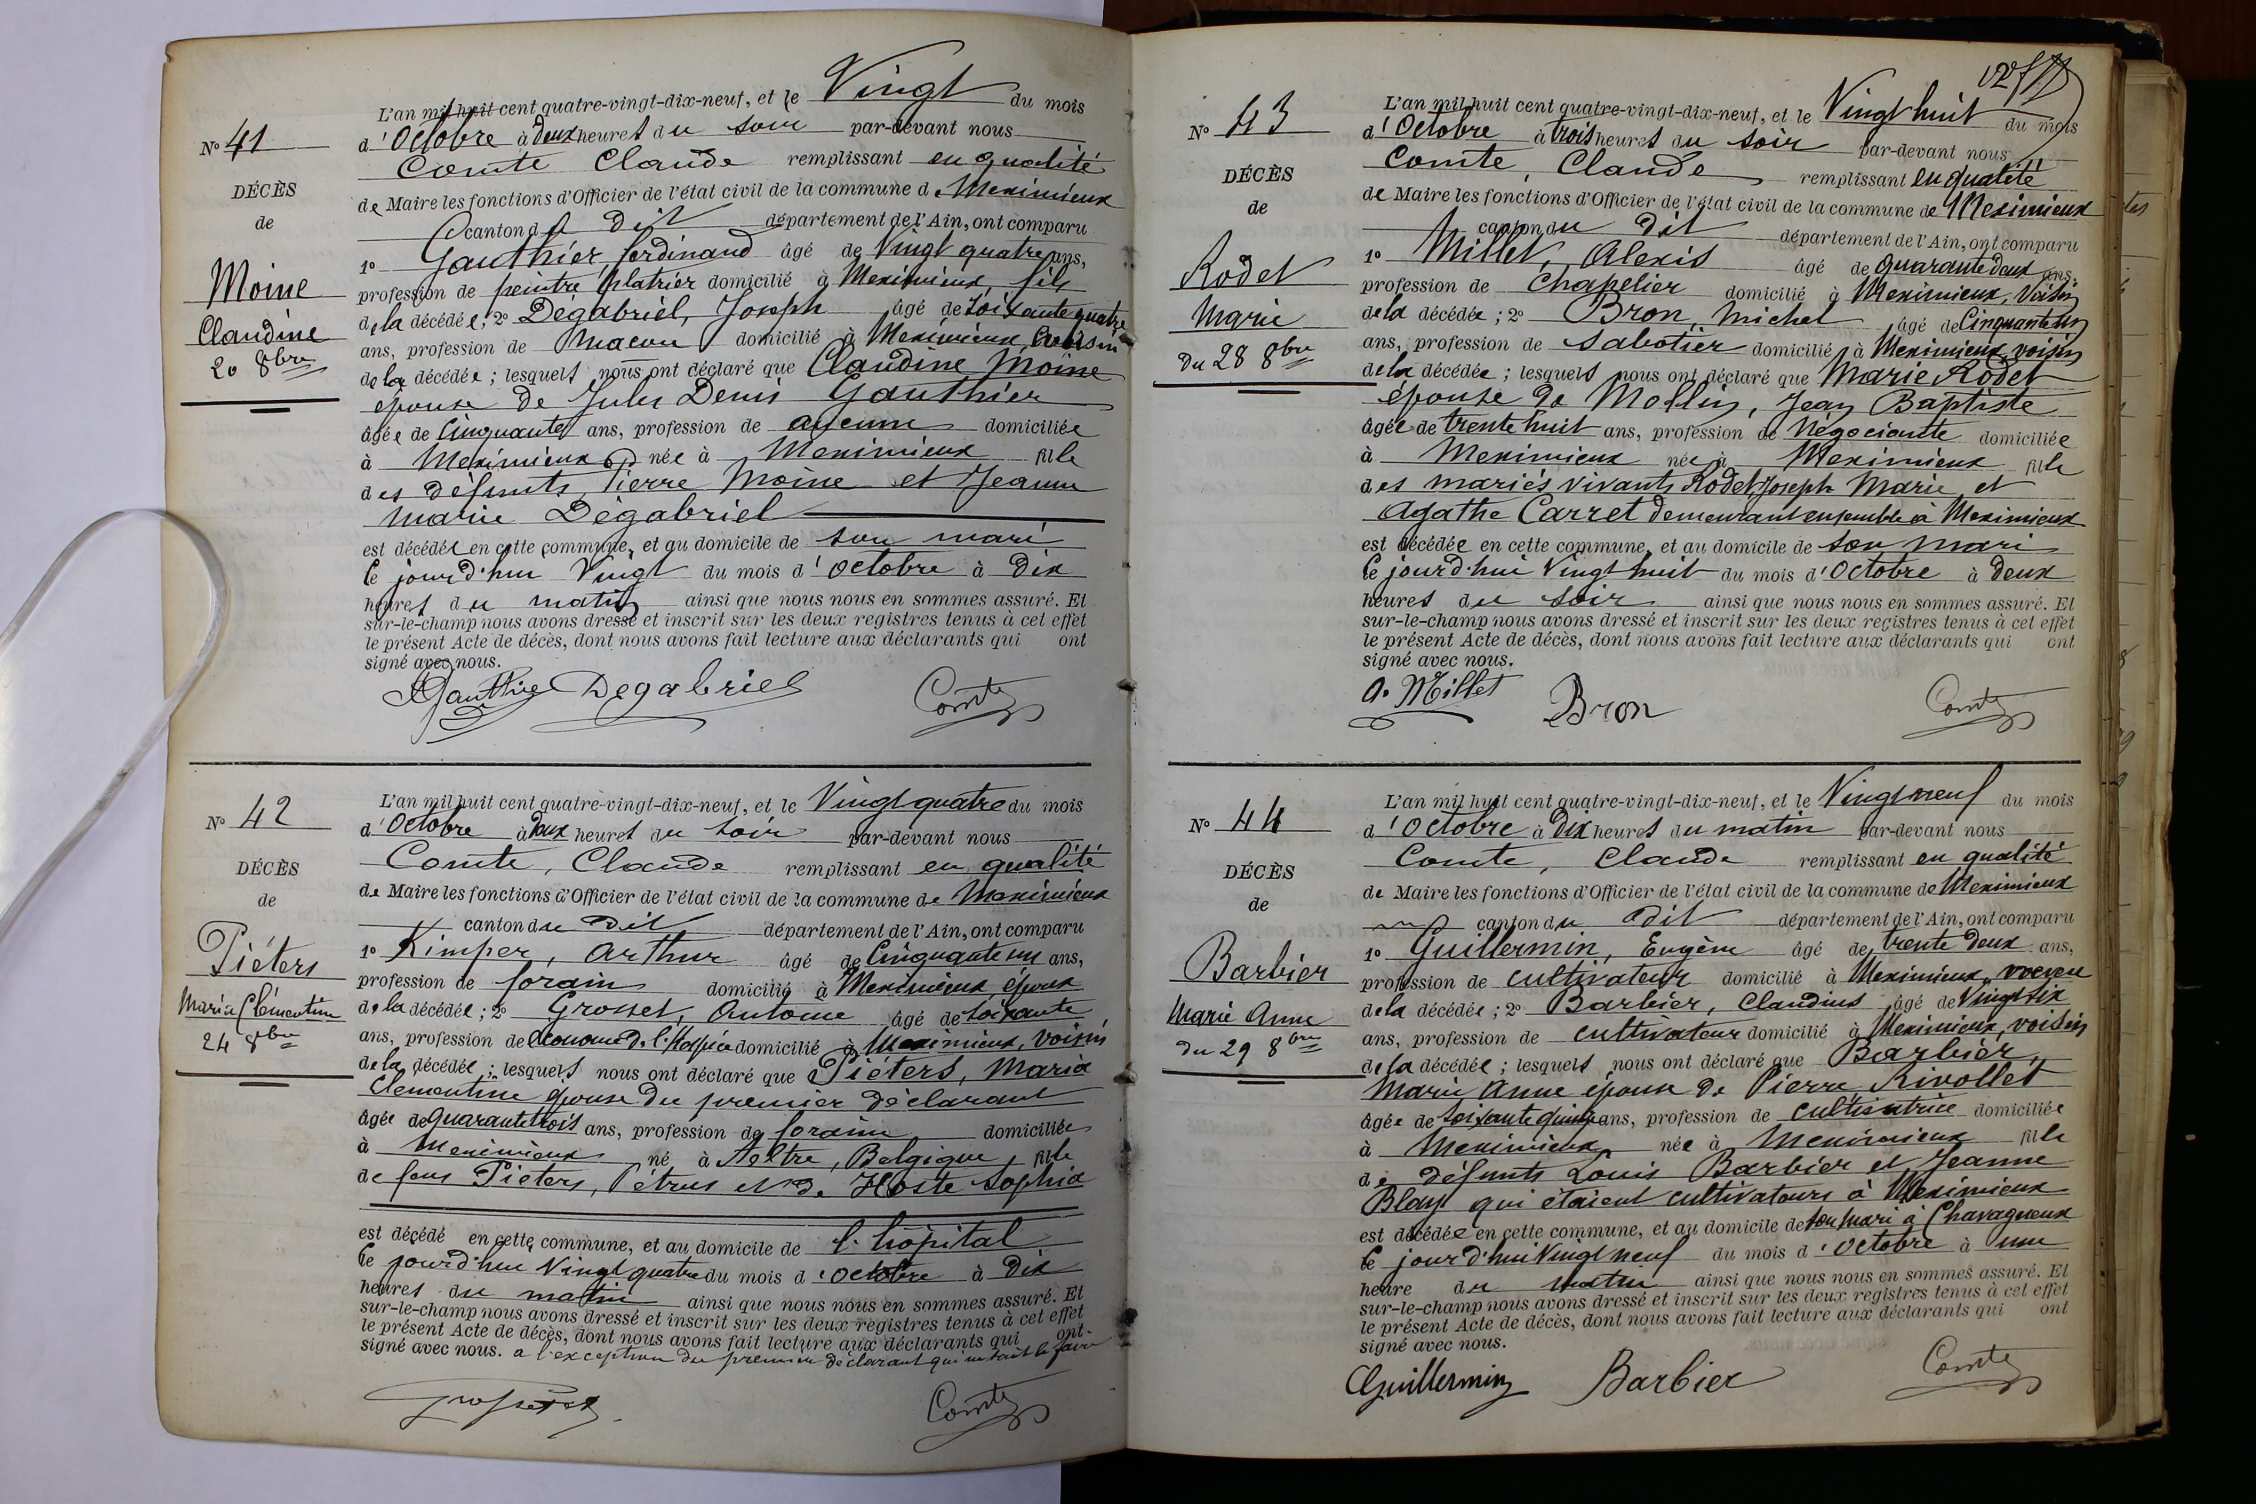 L'an mil huit cent quatre-vingt-dix-neuf, et le Vingt du mois
d'Octobre à deux heures du soir par-devant nous
Comte Claude remplissant en qualité
de Maire les fonctions d'Officier de l'état civil de la commune de Meximieux
canton du dit département de l'Ain, ont comparu
1º Gauthier, ferdinand âgé de Vingt quatre ans,
profession de peintre platrier domicilié à Meximieux, fils
de la décédée; 2º Dégabriel, Joseph âgé de soixante quatre
ans, profession de maçon domicilié à Meximieux, Cousin
de la décédée; lesquels nous ont déclaré que Claudine Moine
épouse de Jules Denis Gauthier
âgée de Cinquante ans, profession de aucune domiciliée
à Meximieux née à Meximieux fille
des défunts Pierre Moine et Jeanne
marie Dégabriel
est décédée en cette commune, et au domicile de son mari
le jourd'hui Vingt du mois d'octobre à Dix
heures du matin ainsi que nous nous en sommes assuré. Et
sur-le-champ nous avons dressé et inscrit sur les deux registres tenus à cet effet
le présent Acte de décès, dont nous avons fait lecture aux déclarants qui ont
signé avec nous.
Gauthier Dégabriel Comte
Nº 41
DÉCÈS
de
Moine
Claudine
20 8bre
L'an mil huit cent quatre-vingt-dix-neuf, et le Vingt quatre du mois
d'Octobre à deux heures du soir par-devant nous
Comte, Claude remplissant en qualité
de Maire les fonctions d'Officier de l'état civil de la commune de Meximieux
canton du dit département de l'Ain, ont comparu
1º Kimper, Arthur âgé de Cinquante un ans,
profession de forain domicilié à Meximieux époux
de la décédée; 2º Grosset, Antoine âgé de soixante
ans, profession de économe de l'Hospice domicilié à Meximieux, voisin
de la décédée; lesquels nous ont déclaré que Piéters, Maria
Clementine épouse du premier déclarant
âgée de quarante trois ans, profession de foraine domiciliée
à Meximieux né à Aeltre, Belgique fille
de feus Piéters, Pétrus et de Hoste Sophia
est décédé en cette commune, et au domicile de l'hôpital
le jourd'hui Vingt quatre du mois d'octobre à Dix
heures du matin ainsi que nous nous en sommes assuré. Et
sur-le-champ nous avons dressé et inscrit sur les deux registres tenus à cet effet
le présent Acte de décès, dont nous avons fait lecture aux déclarants qui ont
signé avec nous. a l'exception du premier déclarant qui ne sait le faire
Grosset Comte
Nº 42
DÉCÈS
de
Piéters
Maria Clémentine
24 8bre
L'an mil huit cent quatre-vingt-dix-neuf, et le Vingt huit du mois
d'Octobre à trois heures du soir par-devant nous
Comte, Claude remplissant en qualité
de Maire les fonctions d'Officier de l'état civil de la commune de Meximieux
canton du dit département de l'Ain, ont comparu
1º Millet, Alexis âgé de quarante deux ans,
profession de Chapelier domicilié à Meximieux, Voisin
de la décédée; 2º Bron, Michel âgé de Cinquante un
ans, profession de sabotier domicilié à Meximieux, voisin
de la décédée; lesquels nous ont déclaré que Marie Rodet
épouse de Mollin, Jean Baptiste
âgée de trente huit ans, profession de Négociante domiciliée
à Meximieux née à Meximieux fille
des mariés vivants Rodet, Joseph Marie et
Agathe Carret demeurant ensemble à Meximieux
est décédée en cette commune, et au domicile de son mari
le jourd'hui Vingt huit du mois d'Octobre à deux
heures du soir ainsi que nous nous en sommes assuré. Et
sur-le-champ nous avons dressé et inscrit sur les deux registres tenus à cet effet
le présent Acte de décès, dont nous avons fait lecture aux déclarants qui ont
signé avec nous.
a. Millet Bron Comte
Nº 43
DÉCÈS
de
Rodet
Marie
du 28 8bre
L'an mil huit cent quatre-vingt-dix-neuf, et le Vingt neuf du mois
d'Octobre à dix heures du matin par-devant nous
Comte, Claude remplissant en qualité
de Maire les fonctions d'Officier de l'état civil de la commune de Meximieux
canton du dit département de l'Ain, ont comparu
1º Guillermin, Eugène âgé de trente deux ans,
profession de cultivateur domicilié à Meximieux,
de la décédée; 2º Barbier, Claudius âgé de Vingt six
ans, profession de cultivateur domicilié à Meximieux, voisin
de la décédée; lesquels nous ont déclaré que Barbier,
Marie Anne épouse de Pierre Rivollet
âgée de soixante quinze ans, profession de cultivatrice domiciliée
à Meximieux née à Meximieux fille
de défunts Louis Barbier et Jeanne
Blay qui étaient cultivateurs à Meximieux
est décédée en cette commune, et au domicile de son mari à Chavagneux
le jourd'hui Vingt neuf du mois d'octobre à une
heure du matin ainsi que nous nous en sommes assuré. Et
sur-le-champ nous avons dressé et inscrit sur les deux registres tenus à cet effet
le présent Acte de décès, dont nous avons fait lecture aux déclarants qui ont
signé avec nous.
Guillermin Barbier Comte
Nº 44
DÉCÈS
de
Barbier
Marie Anne
du 29 8bre